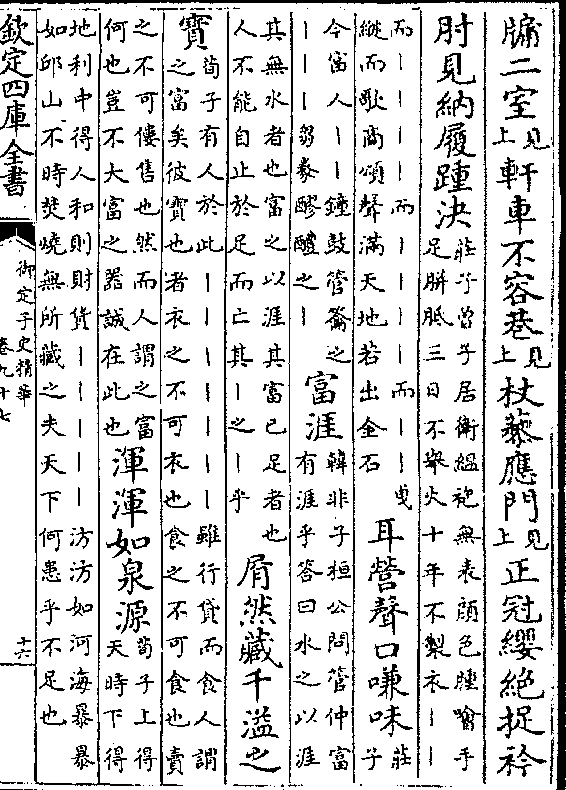 牖二室見上軒車不容巷見上杖藜應門見上正冠纓絕捉衿
肘見納履踵決莊子曾子居衛縕袍無表顏色腫噲手
足胼胝三日不舉火十年不製衣丨丨
而丨丨丨丨而丨丨丨丨而丨丨曳
縰而歌商頌聲滿天地若出金石耳營聲口嗛味莊
子
今富人丨丨鐘鼓管籥之
丨丨丨芻豢醪醴之丨富涯韓非子桓公問管仲富
有涯乎答曰水之以涯
其無水者也富之以涯其富已足者也
人不能自止於足而亡其丨之丨乎屑然藏千溢之
寶荀子有人於此丨丨丨丨丨丨丨雖行貸而食人謂
之富矣彼寶也者衣之不可衣也食之不可食也賣
之不可僂售也然而人謂之富
何也豈不大富之器誠在此也渾渾如泉源荀子上得
天時下得
地利中得人和則財貨丨丨丨丨丨汸汸如河海暴暴
如邱山不時焚燒無所臧之夫天下何患乎不足也
欽定四庫全書
御定子史精華
卷九十七
十六